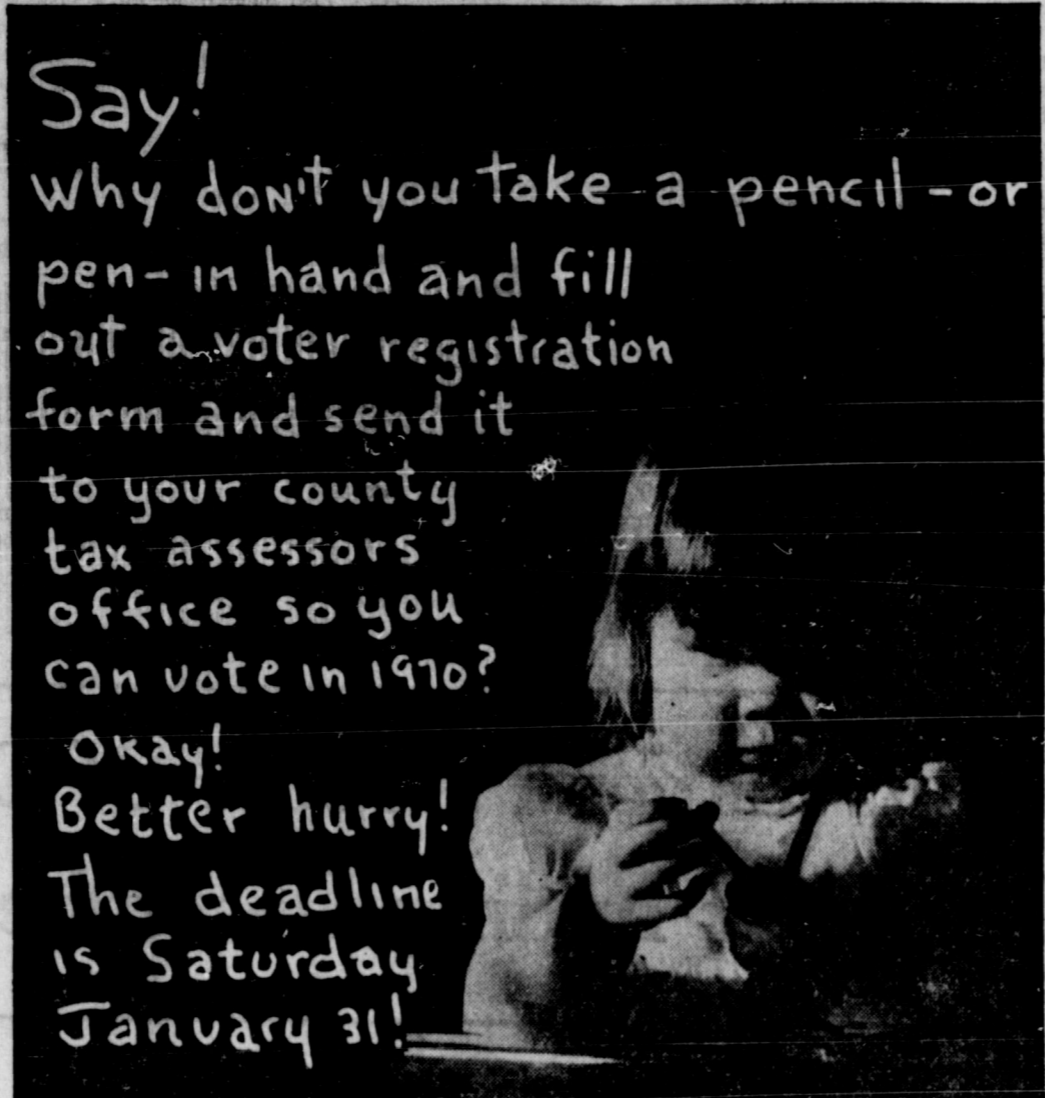 Say!
Why don't you take a pencil - or
pen - in hand and fill
out a voter registration
form and send it
to your county
tax assessors
office so you
can vote in 1970?
Okay!
Better hurry!
The deadline
is Saturday
January 31!